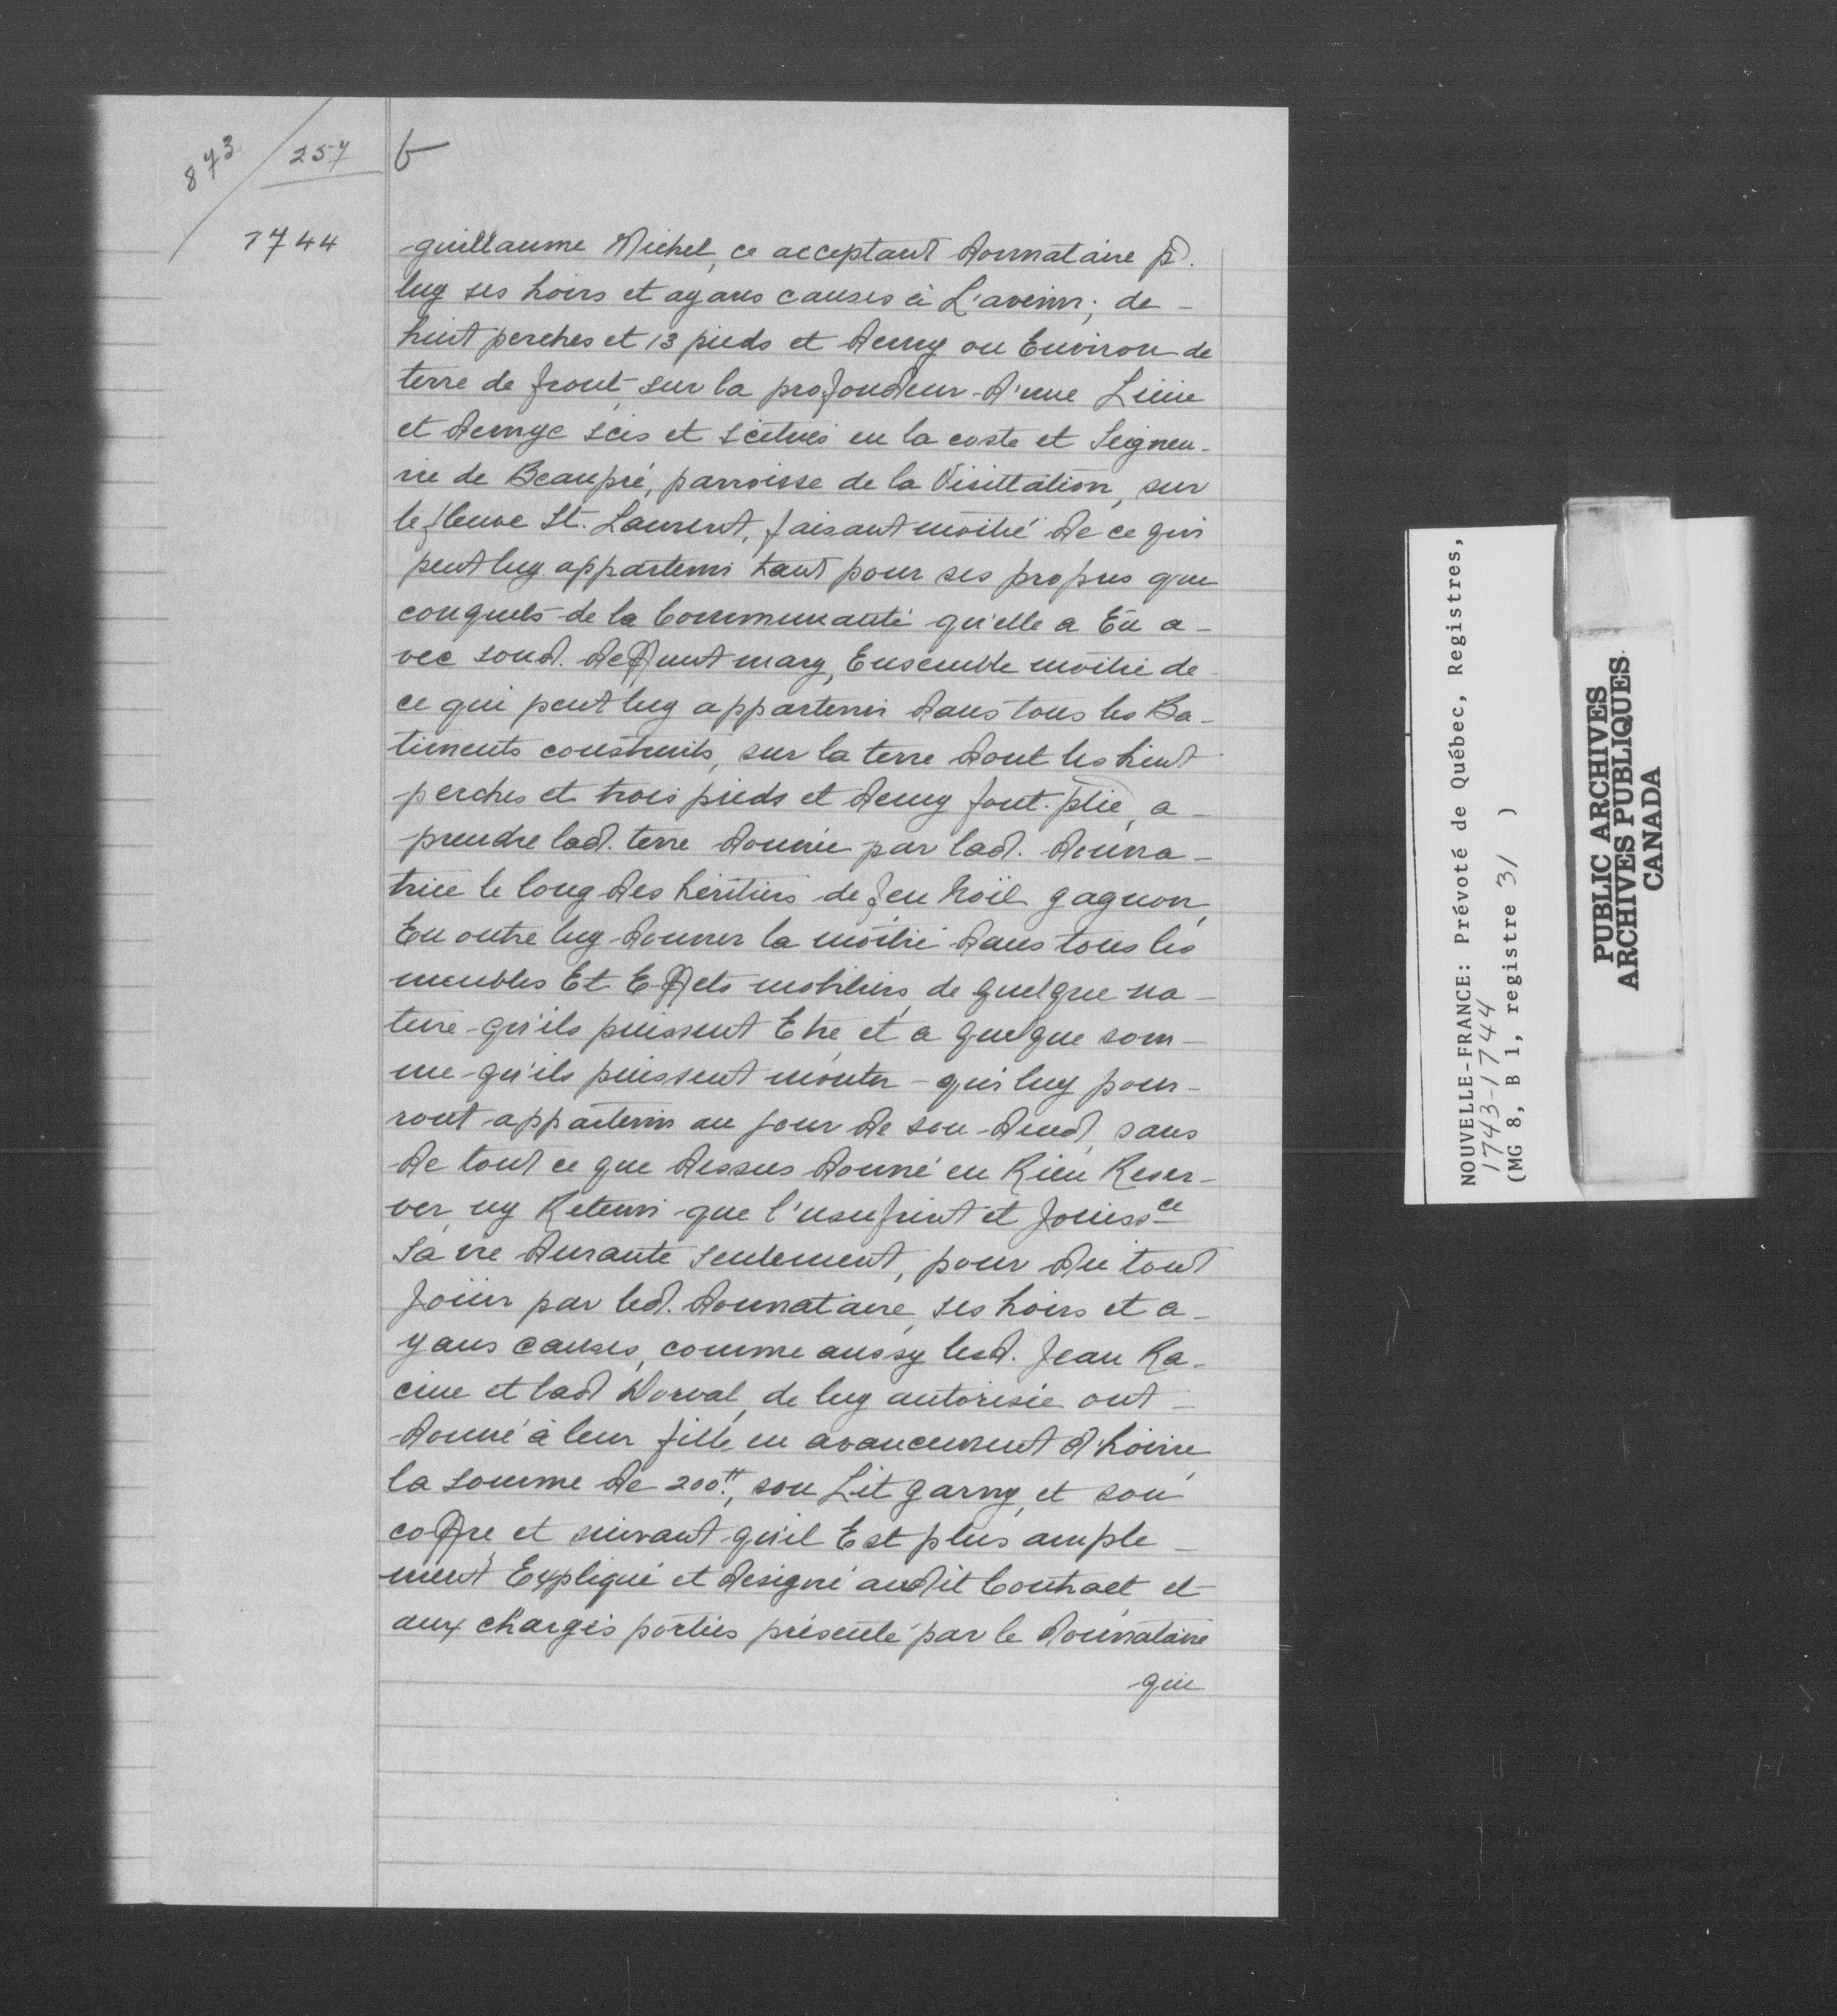 873
257
1744
guillaume Michel, ce acceptant donnataire p.
luy ses hoirs et ayans causes à L'avenir, de
huit perches et 13 pieds et demy ou Environ de
terre de front, sur la profondeur d'une Lieüe
et demye scis et scitués en la coste et Seigneu-
rie de Beaupré, parroisse de la Visittation, sur
le fleuve St. Laurent, faisant moitié de ce qui
peut luy appartenir tant pour ses propres que
conquets de la Communauté qu'elle a Eü a-
vec sond. deffunt mary, Ensemble moitié de
ce qui peut luy appartenir dans tous les Ba-
timents construits, sur la terre dont les huit
perches et trois pieds et demy font ptie, a
prendre lad. terre donnée par lad. donna-
trice le long des héritiers de feu Noël gagnon,
En outre luy donner la moitié dans tous les
meubles Et Effets mobiliers de quelque na-
ture qu'ils puissent Etre et a quelque som-
me qu'ils puissent monter qui luy pour-
ront appartenir au jour de son deced, sans
de tout ce que dessus donné en Rien Reser-
ver ny Retenir que l'usufruit et Jouissce
sa vie durante seulement, pour du tout
Joüir par led. donnataire, ses hoirs et a-
yans causes, comme aussy lesd. Jean Ra-
cine et lad Dorval, de luy autorisée ont
donné à leur fille en avancement d'hoirie
la somme de 200tt, son Lit garny et son
coffre et suivant qu'il Est plus ample-
ment Expliqué et designé audit Contract et
aux charges portées présenté par le donnataire
qui
NOUVELLE-FRANCE: Prévoté de Québec, Registres,
1743-1744
(MG 8, B 1, registre 31 )
PUBLIC ARCHIVES
ARCHIVES PUBLIQUES
CANADA